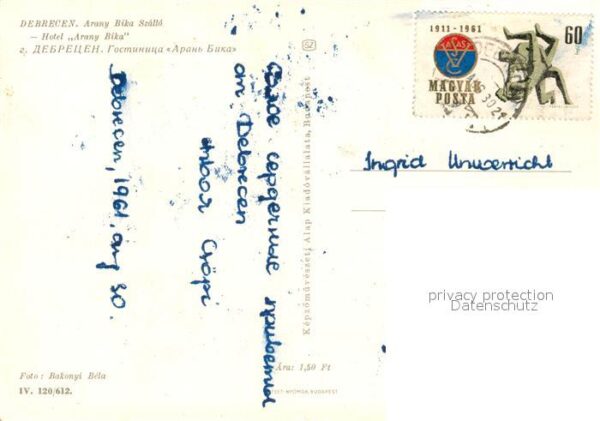 DEBRECEN. Arany Bika Szálló
— Hotel „Arany Bika”
г. ДЕБРЕЦЕН. Гостиница «Арань Бика»
SZ
1911-1961
VASAS
MAGYAR POSTA
60
Ingrid Unverricht
сердечные приветы
от Debrecen
твоя Csöpi
Debrecen, 1961, aug 30.
Képzőművészeti Alap Kiadóvállalata, Budapest
privacy protection
Datenschutz
Foto: Bakonyi Béla
IV. 120/612.
Ára: 1,50 Ft
NYOMDA, BUDAPEST